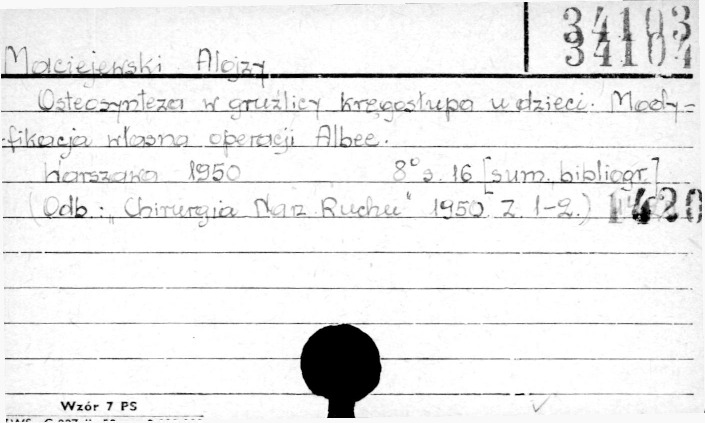 34103
34104
Maciejewski Alojzy
Osteosynteza w gruźlicy kręgosłupa u dzieci. Mody=
fikacja własna operacji Albee.
Warszawa 1950 8° s. 16 [sum. bibliogr.]
(Odb.: „Chirurgia Narz. Ruchu" 1950. Z. 1-2.) 1420
Wzór 7 PS